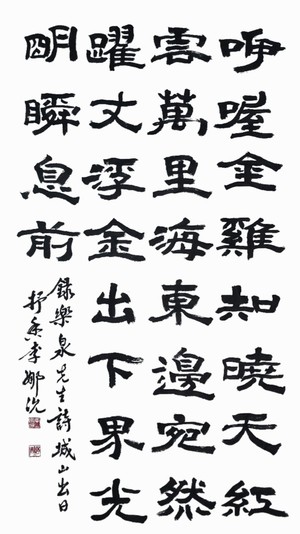 咿喔金雞知曉天紅
雲萬里海東邊宛然
躍丈浮金出下界光
朙瞬息前
錄樂泉先生詩城山出日
李娜沇